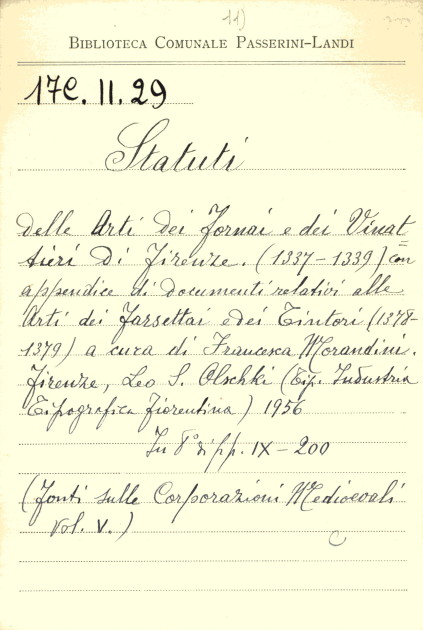 11)
BIBLIOTECA COMUNALE PASSERINI-LANDI
17C. II. 29
Statuti
delle Arti dei Fornai e dei Vinat=
tieri di Firenze. (1337-1339) con
appendice di documenti relativi alle
Arti dei Farsettai e dei Tintori (1378-
1379) a cura di Francesca Morandini.
Firenze, Leo S. Olschki (Tip. Industria
Tipografica Fiorentina) 1956
In 8° di pp. IX-200
(Fonti sulle Corporazioni Medioevali
Vol. V.)
C